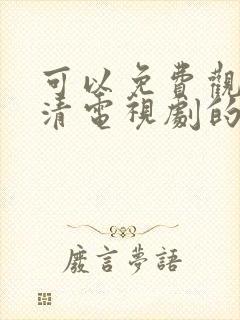 可以免費觀
清電視劇的
廢言夢語